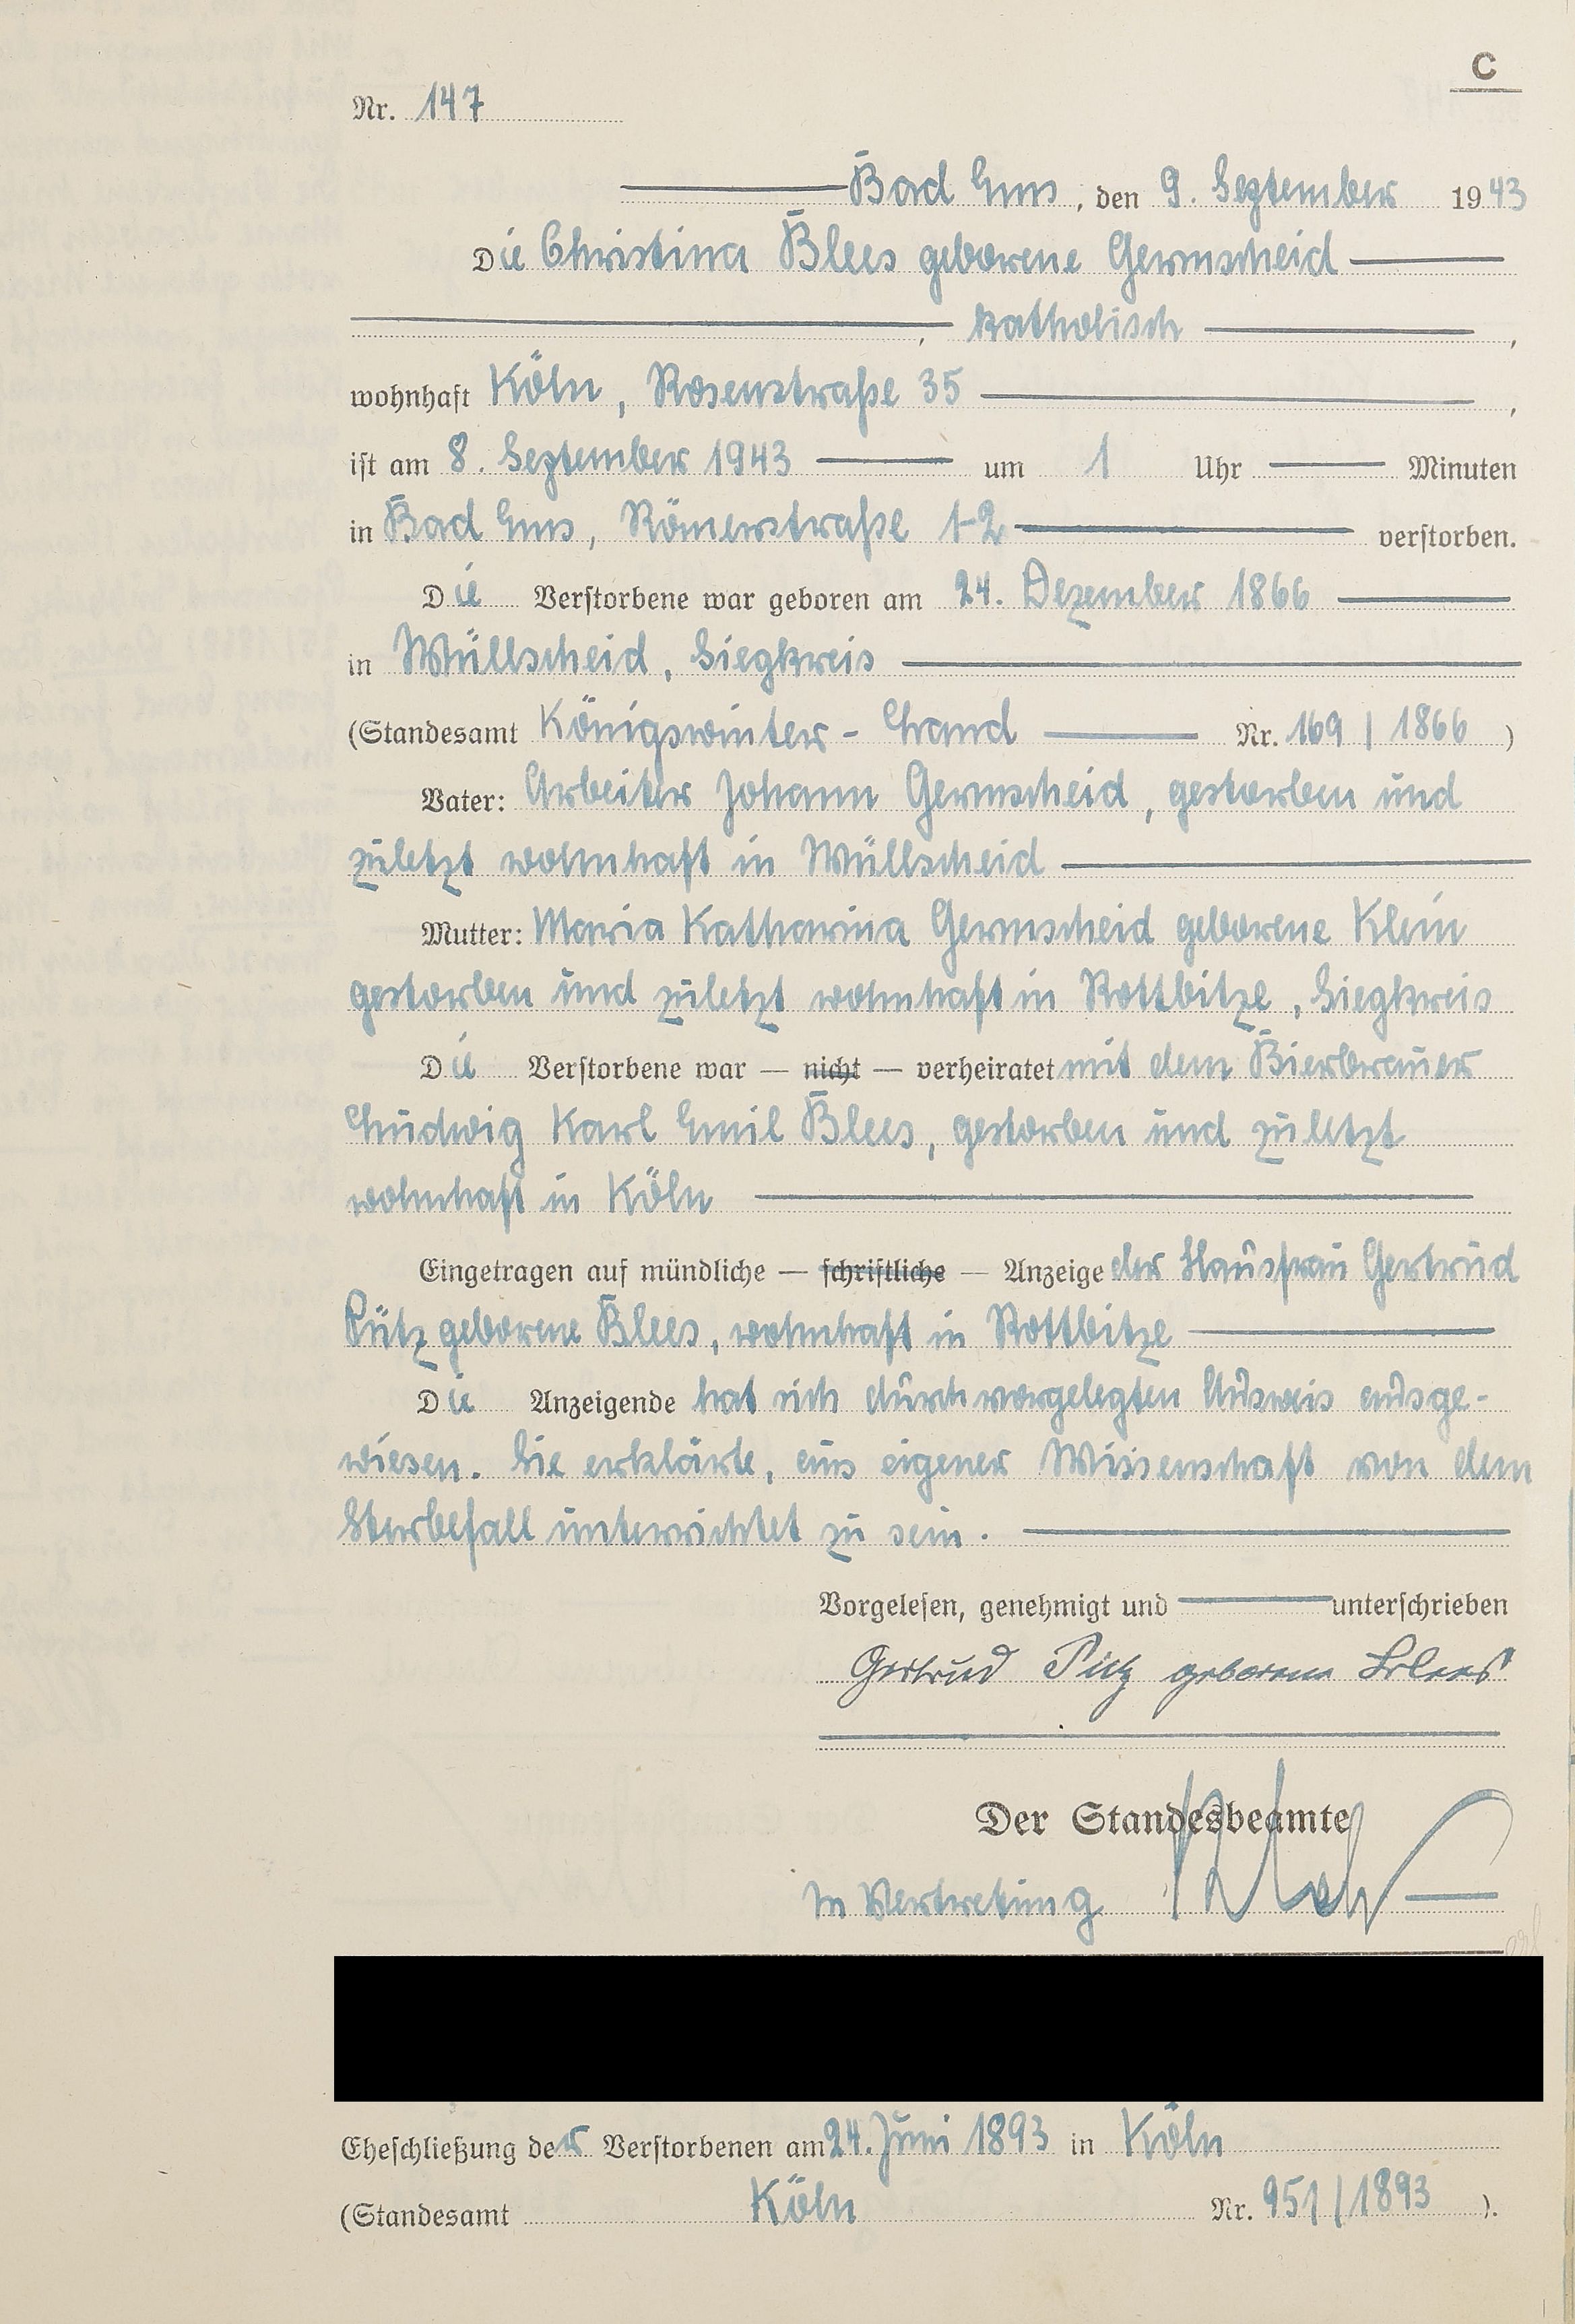 C
Nr. 147
Bad Ems, den 9. September 1943
Die Christina Blees geborene Germscheid
, katholisch ,
wohnhaft Köln, Rosenstraße 35 ,
ist am 8. September 1943 um 1 Uhr Minuten
in Bad Ems, Römerstraße 1-2 verstorben.
Die Verstorbene war geboren am 24. Dezember 1866
in Wüllscheid, Siegkreis
(Standesamt Königswinter - Land Nr. 169 / 1866 )
Vater: Arbeiter Johann Germscheid, gestorben und
zuletzt wohnhaft in Wüllscheid
Mutter: Maria Katharina Germscheid geborene Klein
gestorben und zuletzt wohnhaft in Rottbitze, Siegkreis
Die Verstorbene war — nicht — verheiratet mit dem Bierbrauer
Ludwig Karl Emil Blees, gestorben und zuletzt
wohnhaft in Köln
Eingetragen auf mündliche — schriftliche — Anzeige der Hausfrau Gertrud
Pütz geborene Blees, wohnhaft in Rottbitze
Die Anzeigende hat sich durch vorgelegten Ausweis ausge-
wiesen. Sie erklärte, aus eigener Wissenschaft von dem
Sterbefall unterrichtet zu sein.
Vorgelesen, genehmigt und unterschrieben
Gertrud Pütz geborene Blees
Der Standesbeamte
In Vertretung
Eheschließung der Verstorbenen am 24. Juni 1893 in Köln
(Standesamt Köln Nr. 951/1893 ).